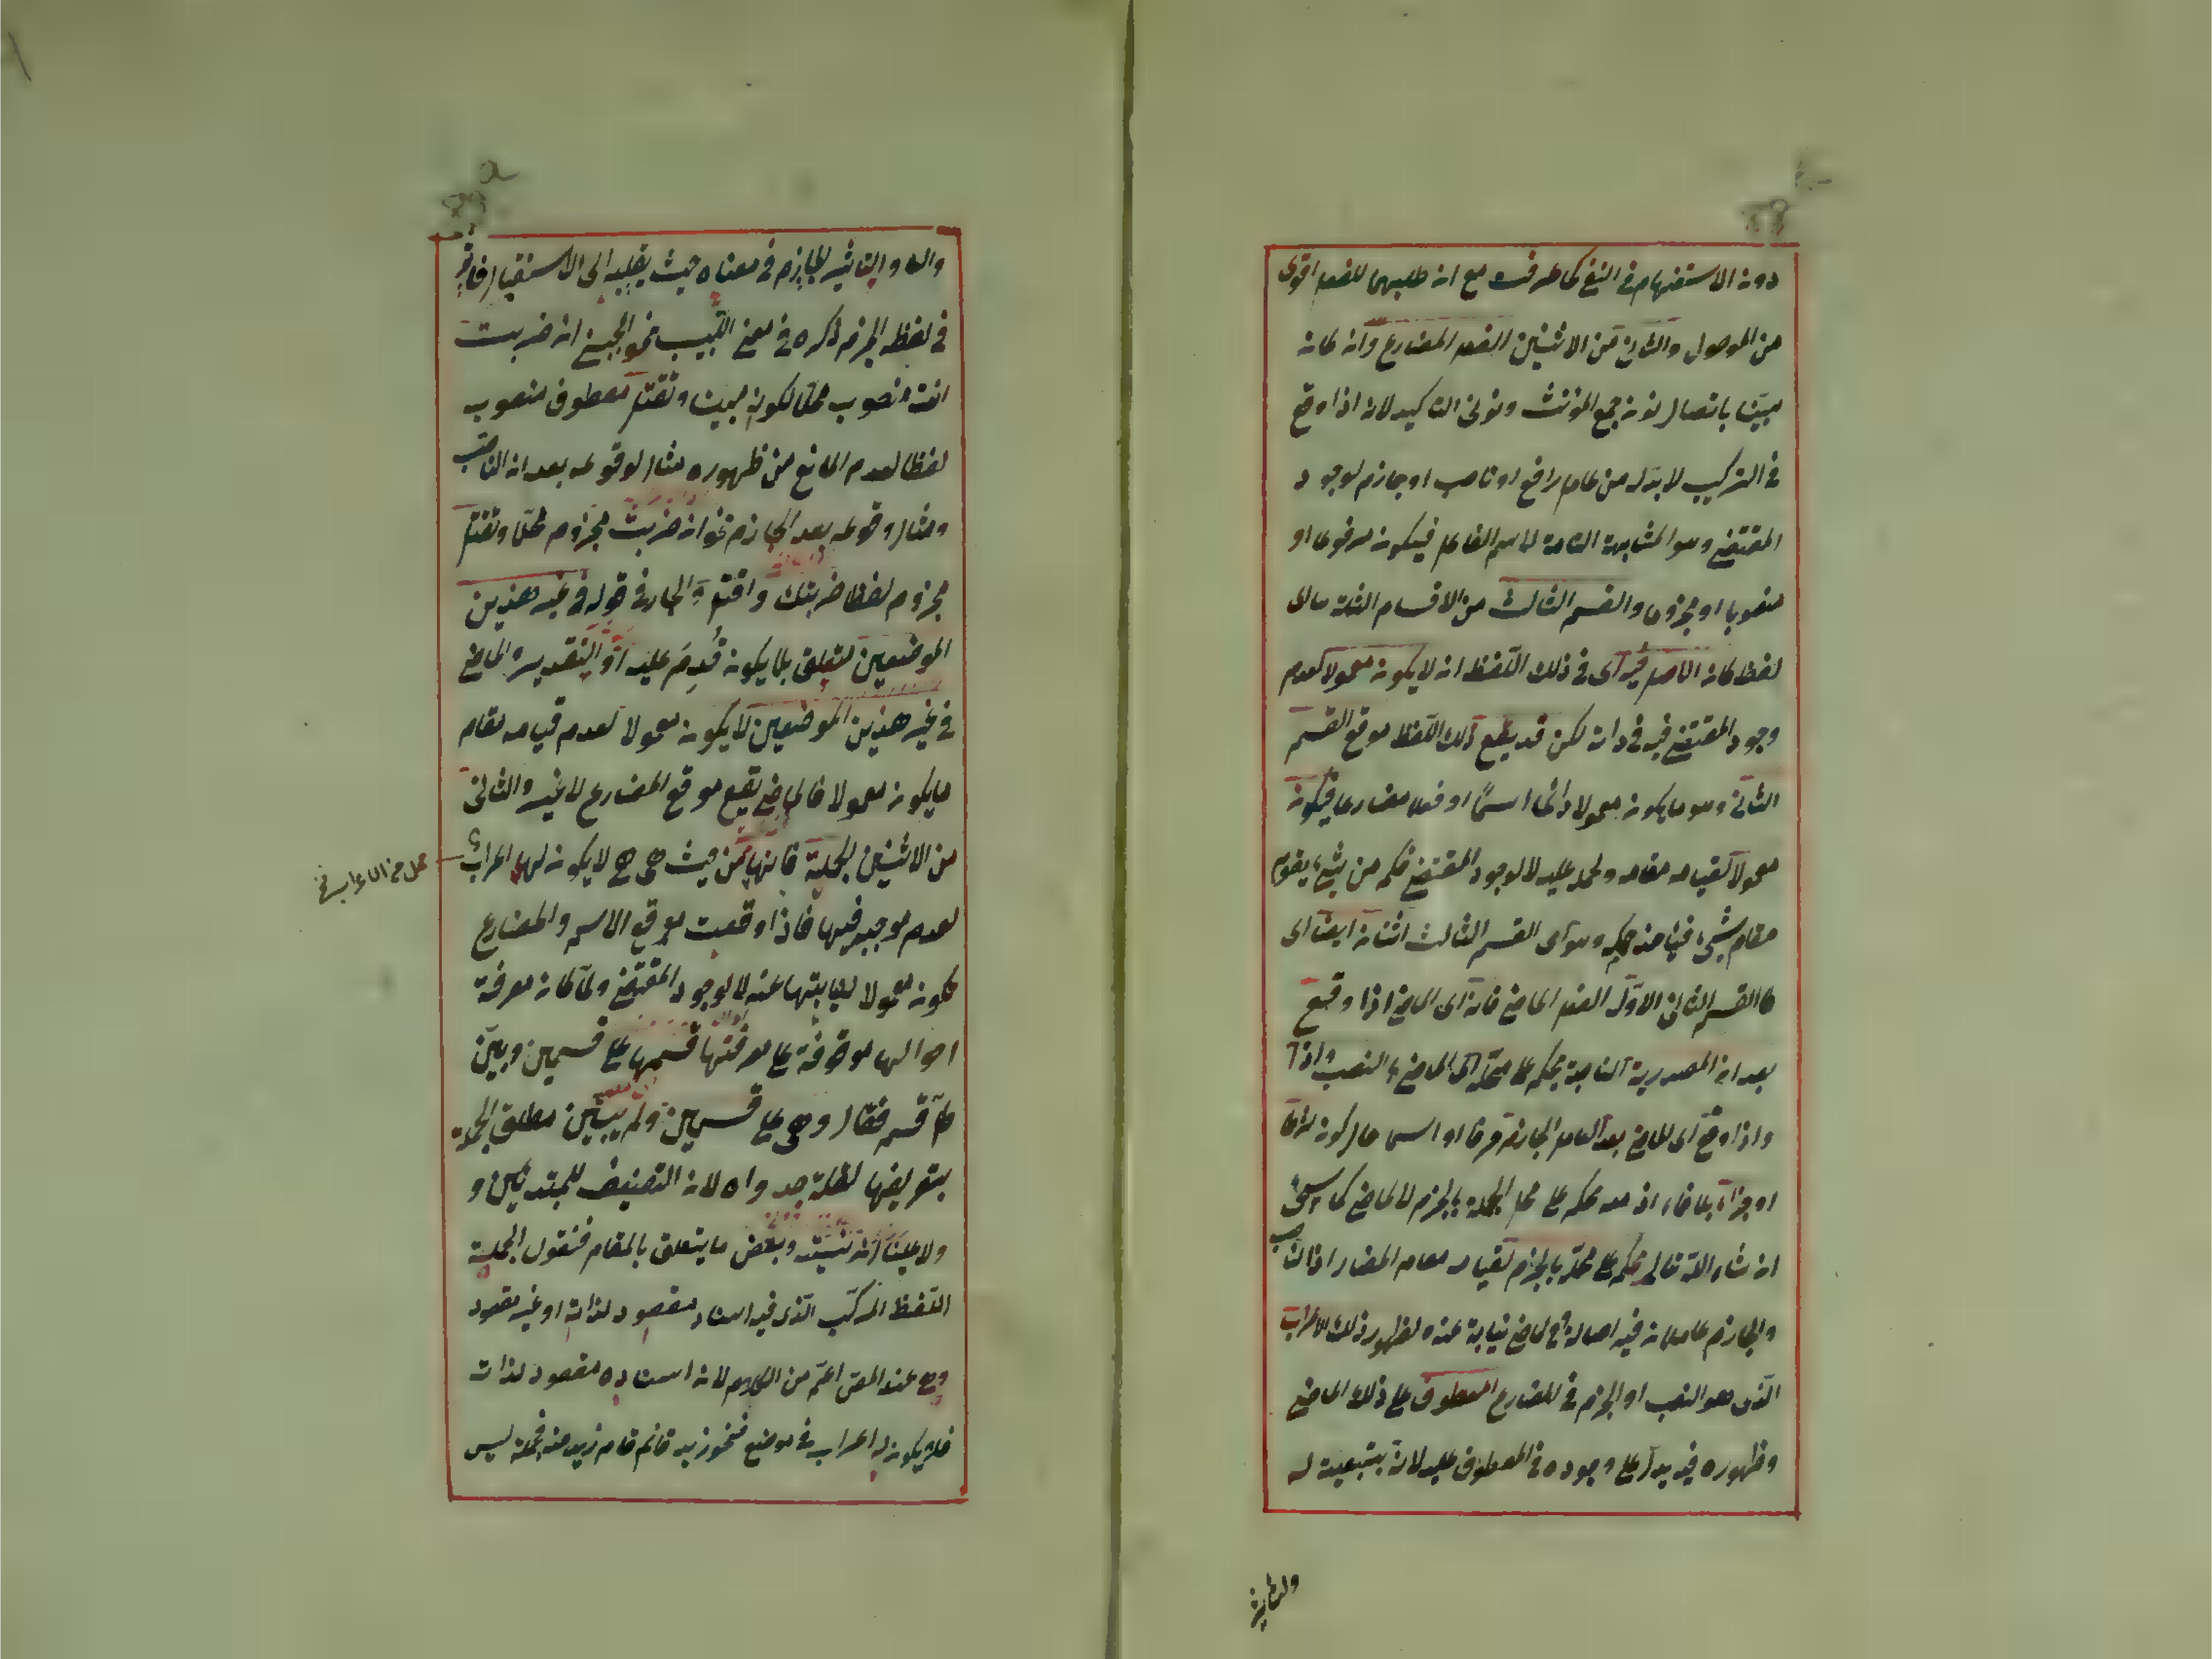 دون الاستفهام في النفي كما عرفت مع ان طلبهما للفعل اقوى
من الموصول والثاني من الاثنين الفعل المضارع وان كان
مبنيّا باتصال نون جمع المؤنث ونوني التاكيد لانه اذا وقع
في التركيب لا بدّ له من عامل رافع او ناصب او جازم لوجود
المقتضي وهو المشابهة التامة لاسم الفاعل فيكون مرفوعا او
منصوبا او مجزوما والقسم الثالث من الاقسام الثلثة ما اى
لفظ كان الاصل فيه اى في ذلك اللفظ ان لا يكون معمولا لعدم
وجود المقتضي فيه في ذاته لكن قد يقع ذلك اللفظ موقع القسم
الثاني وهو ما يكون معمولا دائما اسمًا او فعلا مضارعا فيكون
معمولا لقيامه مقامه وحمله عليه لا لوجود المقتضي فكم من شيء يقوم
مقام شيء فياخذ حكمه وهو اى القسم الثالث اثنان ايضا اى
كالقسم الثاني الاوّل الفعل الماضي فانه اى الماضي اذا وقع
بعد ان المصدرية الناصبة يحكم على محلّه اى الماضي بالنصب واذا
واذا وقع اى الماضي بعد العامل الجازم حرفا او اسما حال كونه شرطا
او جزاءً بلا فاء اذ معه يحكم على محل الجملة بالجزم لا الماضي كما سيجئ
ان شاء اللّه تعالى يحكم على محلّه بالجزم لقيامه مقام المضارع اذ الناصب
والجازم عاملان فيه اصالة وفي الماضي نيابة عنه ولظهور ذلك الاعراب
الذى هو النصب او الجزم في المضارع المعطوف على ذلك الماضي
وظهوره فيه يدلّ على وجوده في المعطوف عليه لانه بتبعيته له
ولتاثير
والا والتاثير للجازم في معناه حيث يقلبه الى الاستقبال فاثر
في لفظه الجزم ذكره في مغني اللبيب نحو اعجبني ان ضربت
انت منصوب محلّا لكونه مبنيا وتقتل معطوف منصوب
لفظا لعدم المانع من ظهوره مثال لوقوعه بعد ان الناصب
ومثال وقوعه بعد الجازم نحو ان ضربت مجزوم محلّا وتقتل
مجزوم لفظا ضربتك واقتل والجار في قوله في غير هذين
الموضعين متعلق بلا يكون قُدِّم عليه او التقدير والماضي
في غير هذين الموضعين لا يكون معمولا لعدم قيامه مقام
ما يكون معمولا فالماضي يقع موقع المضارع لا غير والثاني
من الاثنين الجملة فانها من حيث هي هي لا يكون لها اعراب
محل من الاعراب
لعدم موجبه فيها فاذا وقعت موقع الاسم والمضارع
تكون معمولا لنيابتها عنه لا لوجود المقتضي ولمّا كان معرفة
احوالها موقوفة على معرفتها قسمها على قسمين وبيّن
كلّ قسم فقال وهي على قسمين ولم يبيّن مطلق الجملة
بتعريفها لقلة جدواه لان التصنيف للمبتدئين و
ولا علينا ان نبيّنه وبعض ما يتعلق بالمقام فنقول الجملة
اللفظ المركّب الّذى فيه اسناد مقصود لذاته او غير مقصود
وهو عند المصّ اعمّ من الكلام لان اسناده مقصود لذاته
فلا يكون له اعراب في موضع فنحو زيد قائم قام زيد منه فجملة ليس